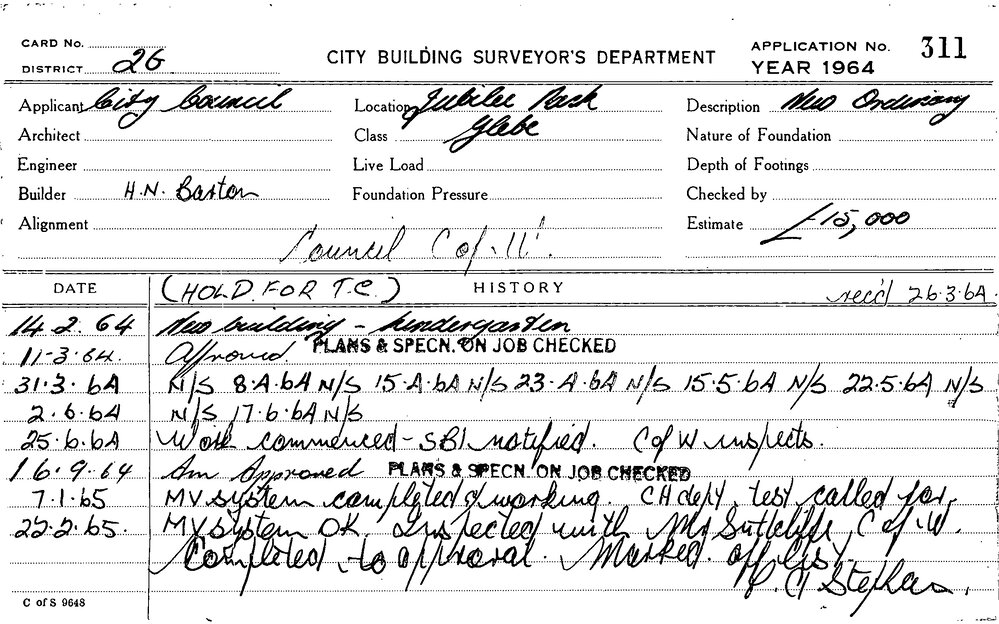 CARD No.
DISTRICT 26
CITY BUILDING SURVEYOR'S DEPARTMENT
APPLICATION No. 311
YEAR 1964
Applicant City Council Location Jubilee Park Description New Ordinary
Architect Class Glebe Nature of Foundation
Engineer Live Load Depth of Footings
Builder H.N. Barton Foundation Pressure Checked by
Alignment Estimate £15,000
Council C of W.
DATE (HOLD FOR T.C.) HISTORY rec'd 26.3.64.
14.2.64 New building - kindergarten
11-3.64. Approved PLANS & SPECN. ON JOB CHECKED
31.3.64 N/S 8.4.64 N/S 15.4.64 N/S 23.4.64 N/S 15.5.64 N/S 22.5.64 N/S
2.6.64 N/S 17.6.64 N/S
25.6.64 Work commenced - SBI notified. C of W inspects.
16.9.64 Am Approved PLANS & SPECN. ON JOB CHECKED
7.1.65 MV system completed & working. CH dept. test called for.
22.2.65. MV system OK. Inspected with Mr Sutcliffe, C of W.
Completed to approval. Marked off list.
Stephens.
C of S 9648